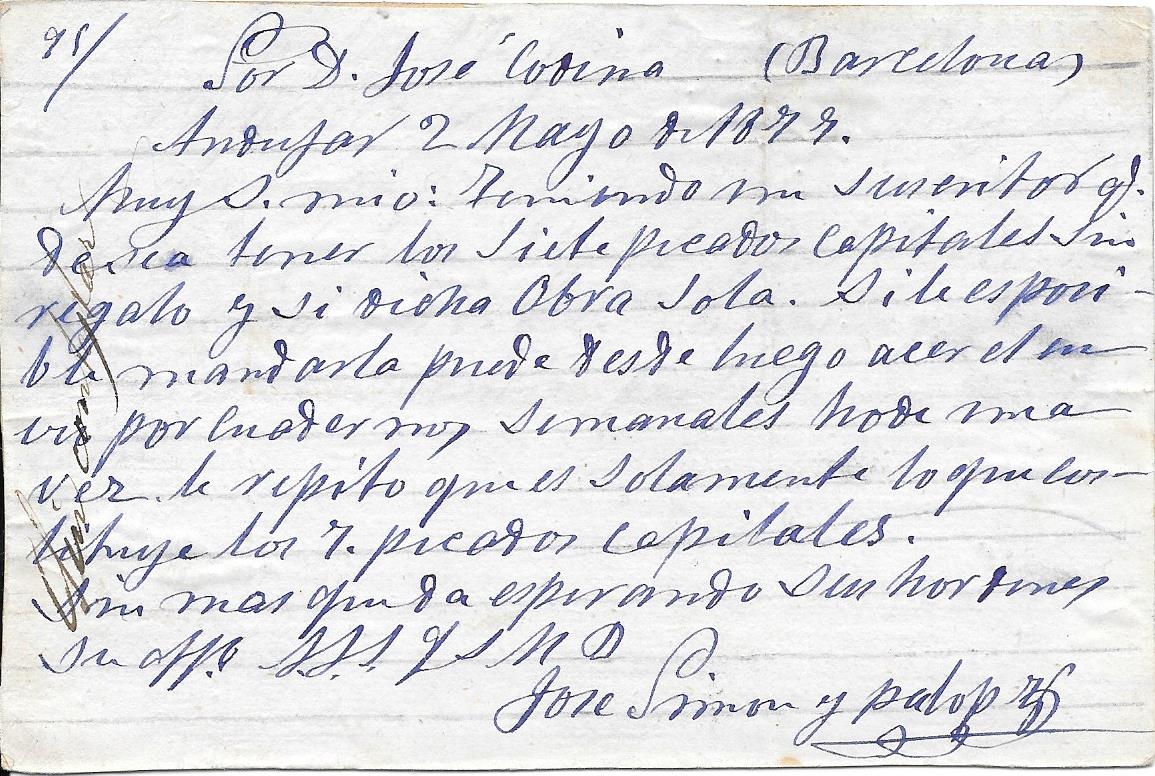 95/
Sor D. José Codina (Barcelona)
Andujar 2 Mayo de 1877.
Muy S. mio: Teniendo un suscritor qe.
desea tener los siete picados capitales sin
regalo y si dicha Obra sola. Si le esposi-
ble mandarla puede desde luego acer el en
vio por cuadernos semanales hode una
vez le repito que es solamente lo que cos-
tituye los 7. picados capitales.
Sin mas queda esperando sus hordenes
su affo S.S.S. q s M B
Jose Simon y palop